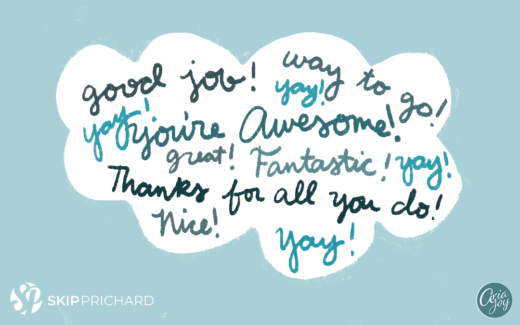 good job!
way to go!
yay!
yay!
you're Awesome!
great! Fantastic! yay!
Thanks for all you do!
Nice!
yay!
SKIPPRICHARD
asia
joy